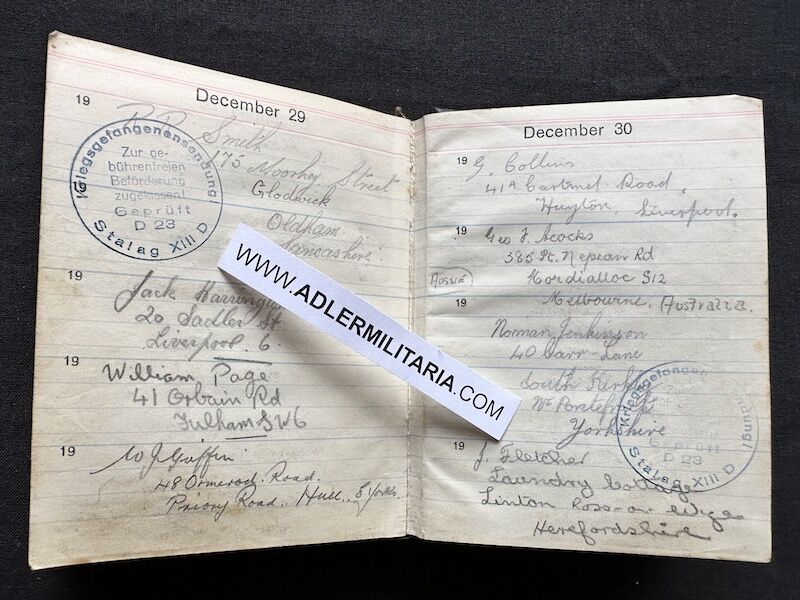 December 29
19
Smith
175 Moorhey Street
Glodwick
Oldham
Lancashire.
Kriegsgefangenensendung
Zur ge-
bührenfreien
Beförderung
zugelassen!
Geprüft
D 23
Stalag XIII D
19
Jack
20 Sadler St.
Liverpool. 6
19
William Page
41 Orbain Rd
Fulham SW6
19
W J Guffin
48 Ormerod. Road.
Priory Road, Hull, E Yorks.
WWW.ADLERMILITARIA.COM
December 30
19
G. Collins
41A Cartmel Road,
Huyton, Liverpool.
19
Geo F. Acocks
385 Pt. Nepean Rd
AUSSIE
Mordialloc S12
19
Melbourne, Australia.
Norman Jenkinson
40 Carr-Lane
South
Nr
Yorkshire
Kriegsgefangen
D 23
Stalag XIII D
19
J. Fletcher
Laundry Cottage
Linton Ross-on-
Herefordshire